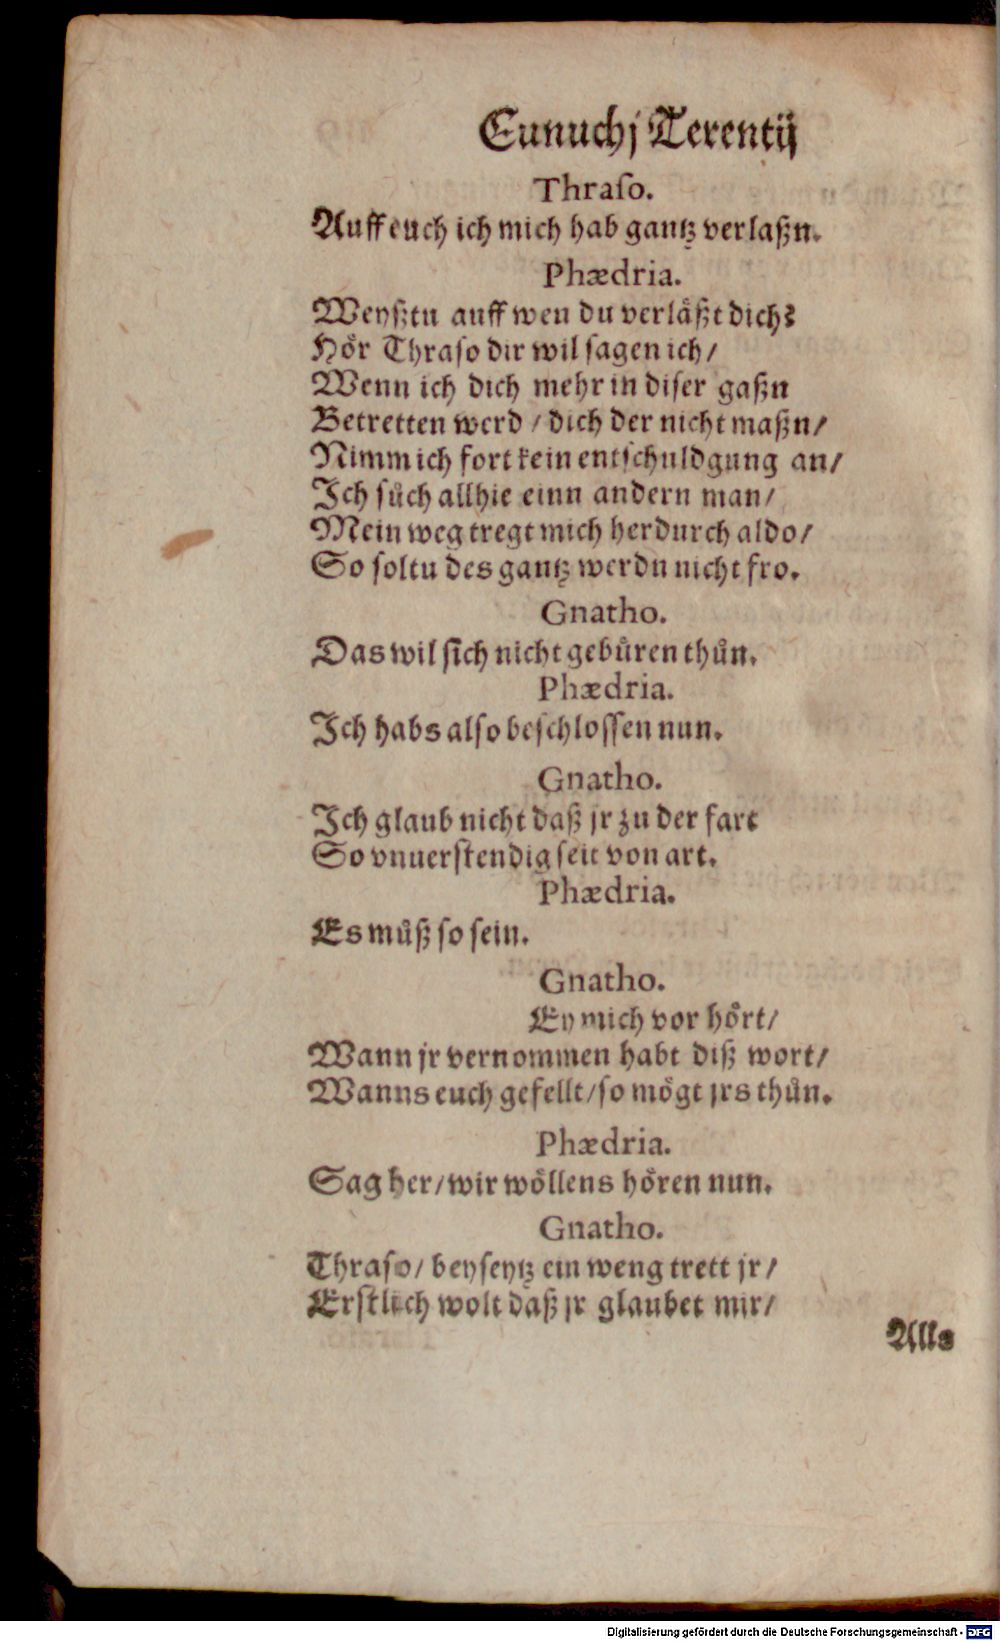 Eunuchj Terentij
Thraso.
Auff euch ich mich hab gantz verlaßn.
Phædria.
Weyßtu auff wen du verläßt dich?
Hör Thraso dir wil sagen ich/
Wenn ich dich mehr in diser gaßn
Betretten werd / dich der nicht maßn/
Nimm ich fort kein entschuldgung an/
Ich sůch allhie einn andern man/
Mein weg tregt mich herdurch aldo/
So soltu des gantz werdn nicht fro.
Gnatho.
Das wil sich nicht gebüren thůn.
Phædria.
Ich habs also beschlossen nun.
Gnatho.
Ich glaub nicht daß jr zu der fart
So vnuerstendig seit von art.
Phædria.
Es můß so sein.
Gnatho.
Ey mich vor hört/
Wann jr vernommen habt diß wort/
Wanns euch gefellt/so mögt jrs thůn.
Phædria.
Sag her/wir wöllens hören nun.
Gnatho.
Thraso/ beyseytz ein weng trett jr/
Erstlich wolt daß jr glaubet mir/
Alls
Digitalisierung gefördert durch die Deutsche Forschungsgemeinschaft - DFG